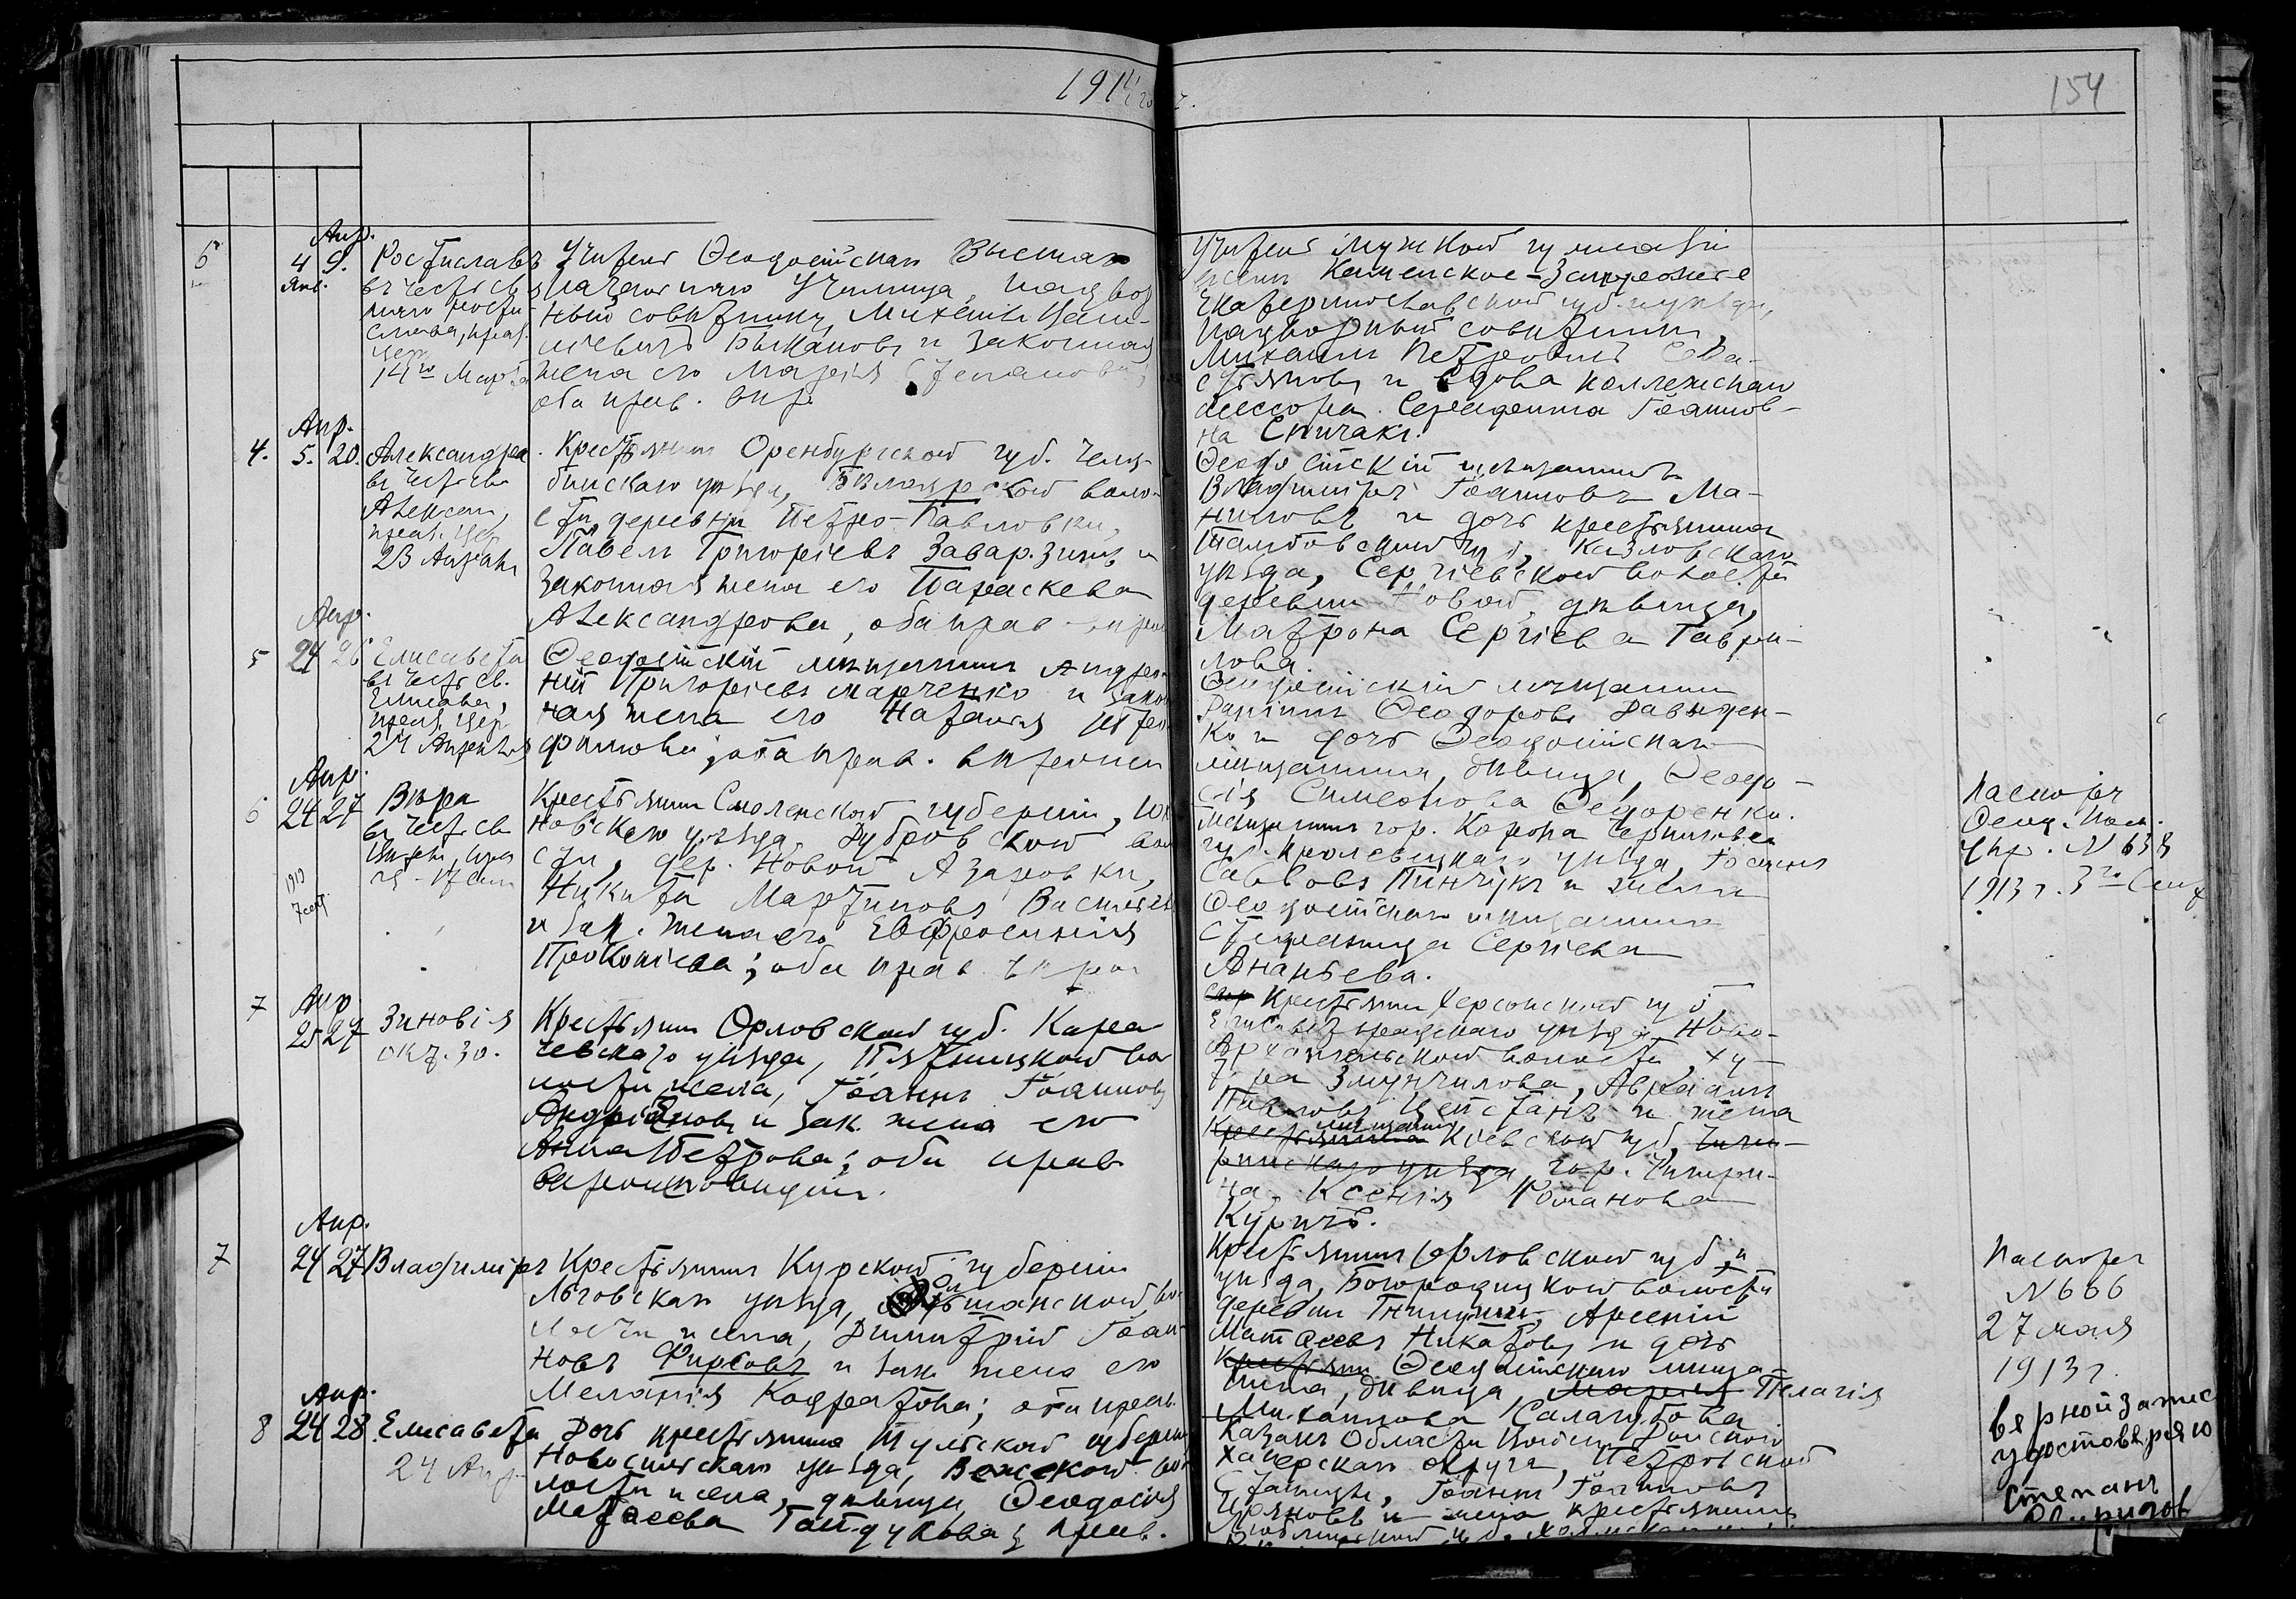 1914 г.
154
5
Апр.
4 9.
Янв.
Ростиславъ
въ честь св
Рости-
слава, прав.
цер.
14го Марта
Учитель Ѳеодосійскаго Высшаго
начальнаго Училища, надвор
ный совѣтникъ Михаилъ
Быкановъ и законная
жена его Марія Степановна,
оба прав. вѣр.
Учитель мужской гимназіи
Каменское-Запорожье
Екатеринославской губ. и уѣзда,
надворный совѣтникъ,
Михаилъ Петровичъ Сева-
стьяновъ и вдова коллежскаго
ассесора Іоаннов-
на Спичакъ.
4.
Апр.
5. 20.
Александра
въ честь св
Алексан,
прав. цер
23 Апрѣля
Крестьянинъ Оренбургской губ. Челя-
бинскаго уѣзда, Бѣлоярской воло-
сти, деревни Петро-Павловки,
Павелъ Григоріевъ Завар.зинъ и
законная жена его Параскева
Александрова, оба прав
Ѳеодосійскій мѣщанинъ
Владиміръ Іоанновъ Ма-
ниловъ и дочь крестьянина
Тамбовской губ, Казловскаго
уѣзда, Сергіевской волости
деревни Новой, дѣвица,
Матрона Сергіева Гаври-
лова.
5
Апр.
24 26
Елисавета
въ честь св.
Елисавы,
прав. цер.
24 Апрѣля
Ѳеодосійскій мѣщанинъ Андро-
никъ Григоріевъ Марченко и закон
ная жена его Наталія
оба прав. вѣроисп
Ѳеодосійскій мѣщанинъ
Ѳеодоровъ Давыден-
ко и дочь Ѳеодосійскаго
мѣщанина, дѣвица, Ѳеодо-
сія Симеонова Ѳедоренко.
6
Апр.
24 27
Вѣра
въ честь св
Вѣры, прав
цер - 17 сент
1919
7 сент
Крестьянинъ Смоленской губерніи, Юх
новскаго уѣзда, Дубровской вол
сти, дер. Новой Азаровки,
Никита Мартиновъ Васильевъ
и зак. жена его Евфросинія
Прокопіева; оба прав. вѣрои
Мѣщанинъ гор. Коропа Черниговск
губ. Кролевецкаго уѣзда, Іоаннъ
Савовъ Пинчукъ и жена
Ѳеодосійскаго мѣщанина
Степанида Сергіева
Ананьева.
Паспортъ
Ѳеод. Пол.
Упр. N 638
1913 г. 3го Сент
7
Апр
25 27
Зиновія
окт. 30.
Крестьянинъ Орловской губ. Кара
чевскаго уѣзда, Пятницкой во
лости, села, Іоаннъ Іоанновъ
Андріановъ и зак. жена его
Анна Петрова; оба прав
вѣроисповѣдія.
Крестьянинъ Херсонской губ
Елисаветградскаго уѣзда, Ново-
Архангельской волости, ху-
тора Змунчилова, Авраамъ
Павловъ и жена
крестьянина мѣщанина Кіевской губ, Чиги-
ринскаго уѣзда гор. Чигири-
на, Ксенія Романова
Куричъ.
7
Апр.
24 27
Владиміръ
Крестьянинъ Курской губерніи
Льговскаго уѣзда, Ольшанской во
лости и села, Димитрій Іоан-
новъ Фирсовъ и зак жена его
Меланія Кодратова; оба прав.
Крестьянинъ Орловской губ и
уѣзда, Богородицкой волости
деревни Арсеній
Матѳеевъ Никатовъ и дочь
Крестьян Ѳеодосійскаго мѣща-
нина, дѣвица, Марія Пелагія
Михаилова
Паспортъ
N 666
27 мая
1913 г.
8
Апр.
24 28
Елисавета
24 Апр
Дочь крестьянина Тульской губерніи
Новосильскаго уѣзда, во
лости и села, дѣвица, Ѳеодосія
Матѳеева Гайдукова; прав.
Казакъ Области Войска Донского
Хаперскаго округа, Петровской
Станицы, Іоаннъ Іоанновъ
и жена крестьянина
вѣрной запис
удостовѣряю
Степанъ